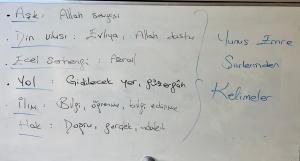 • Aşk: Allah sevgisi
• Din ulusu: Evliya, Allah dostu
. Ecel serhengi: Azrail
• Yol: Gidilecek yer, güzergâh
. İlim: Bilgi, öğrenme, bilgi edinme
. Hak: Doğru, gerçek, adalet
Yunus Emre
Şiirlerinden
Kelimeler